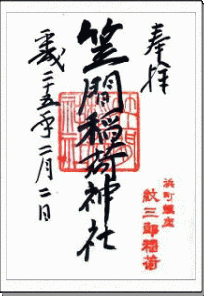 奉拝
笠間稲荷神社
平成二十五年二月二日
浜町鎮座
紋三郎稲荷